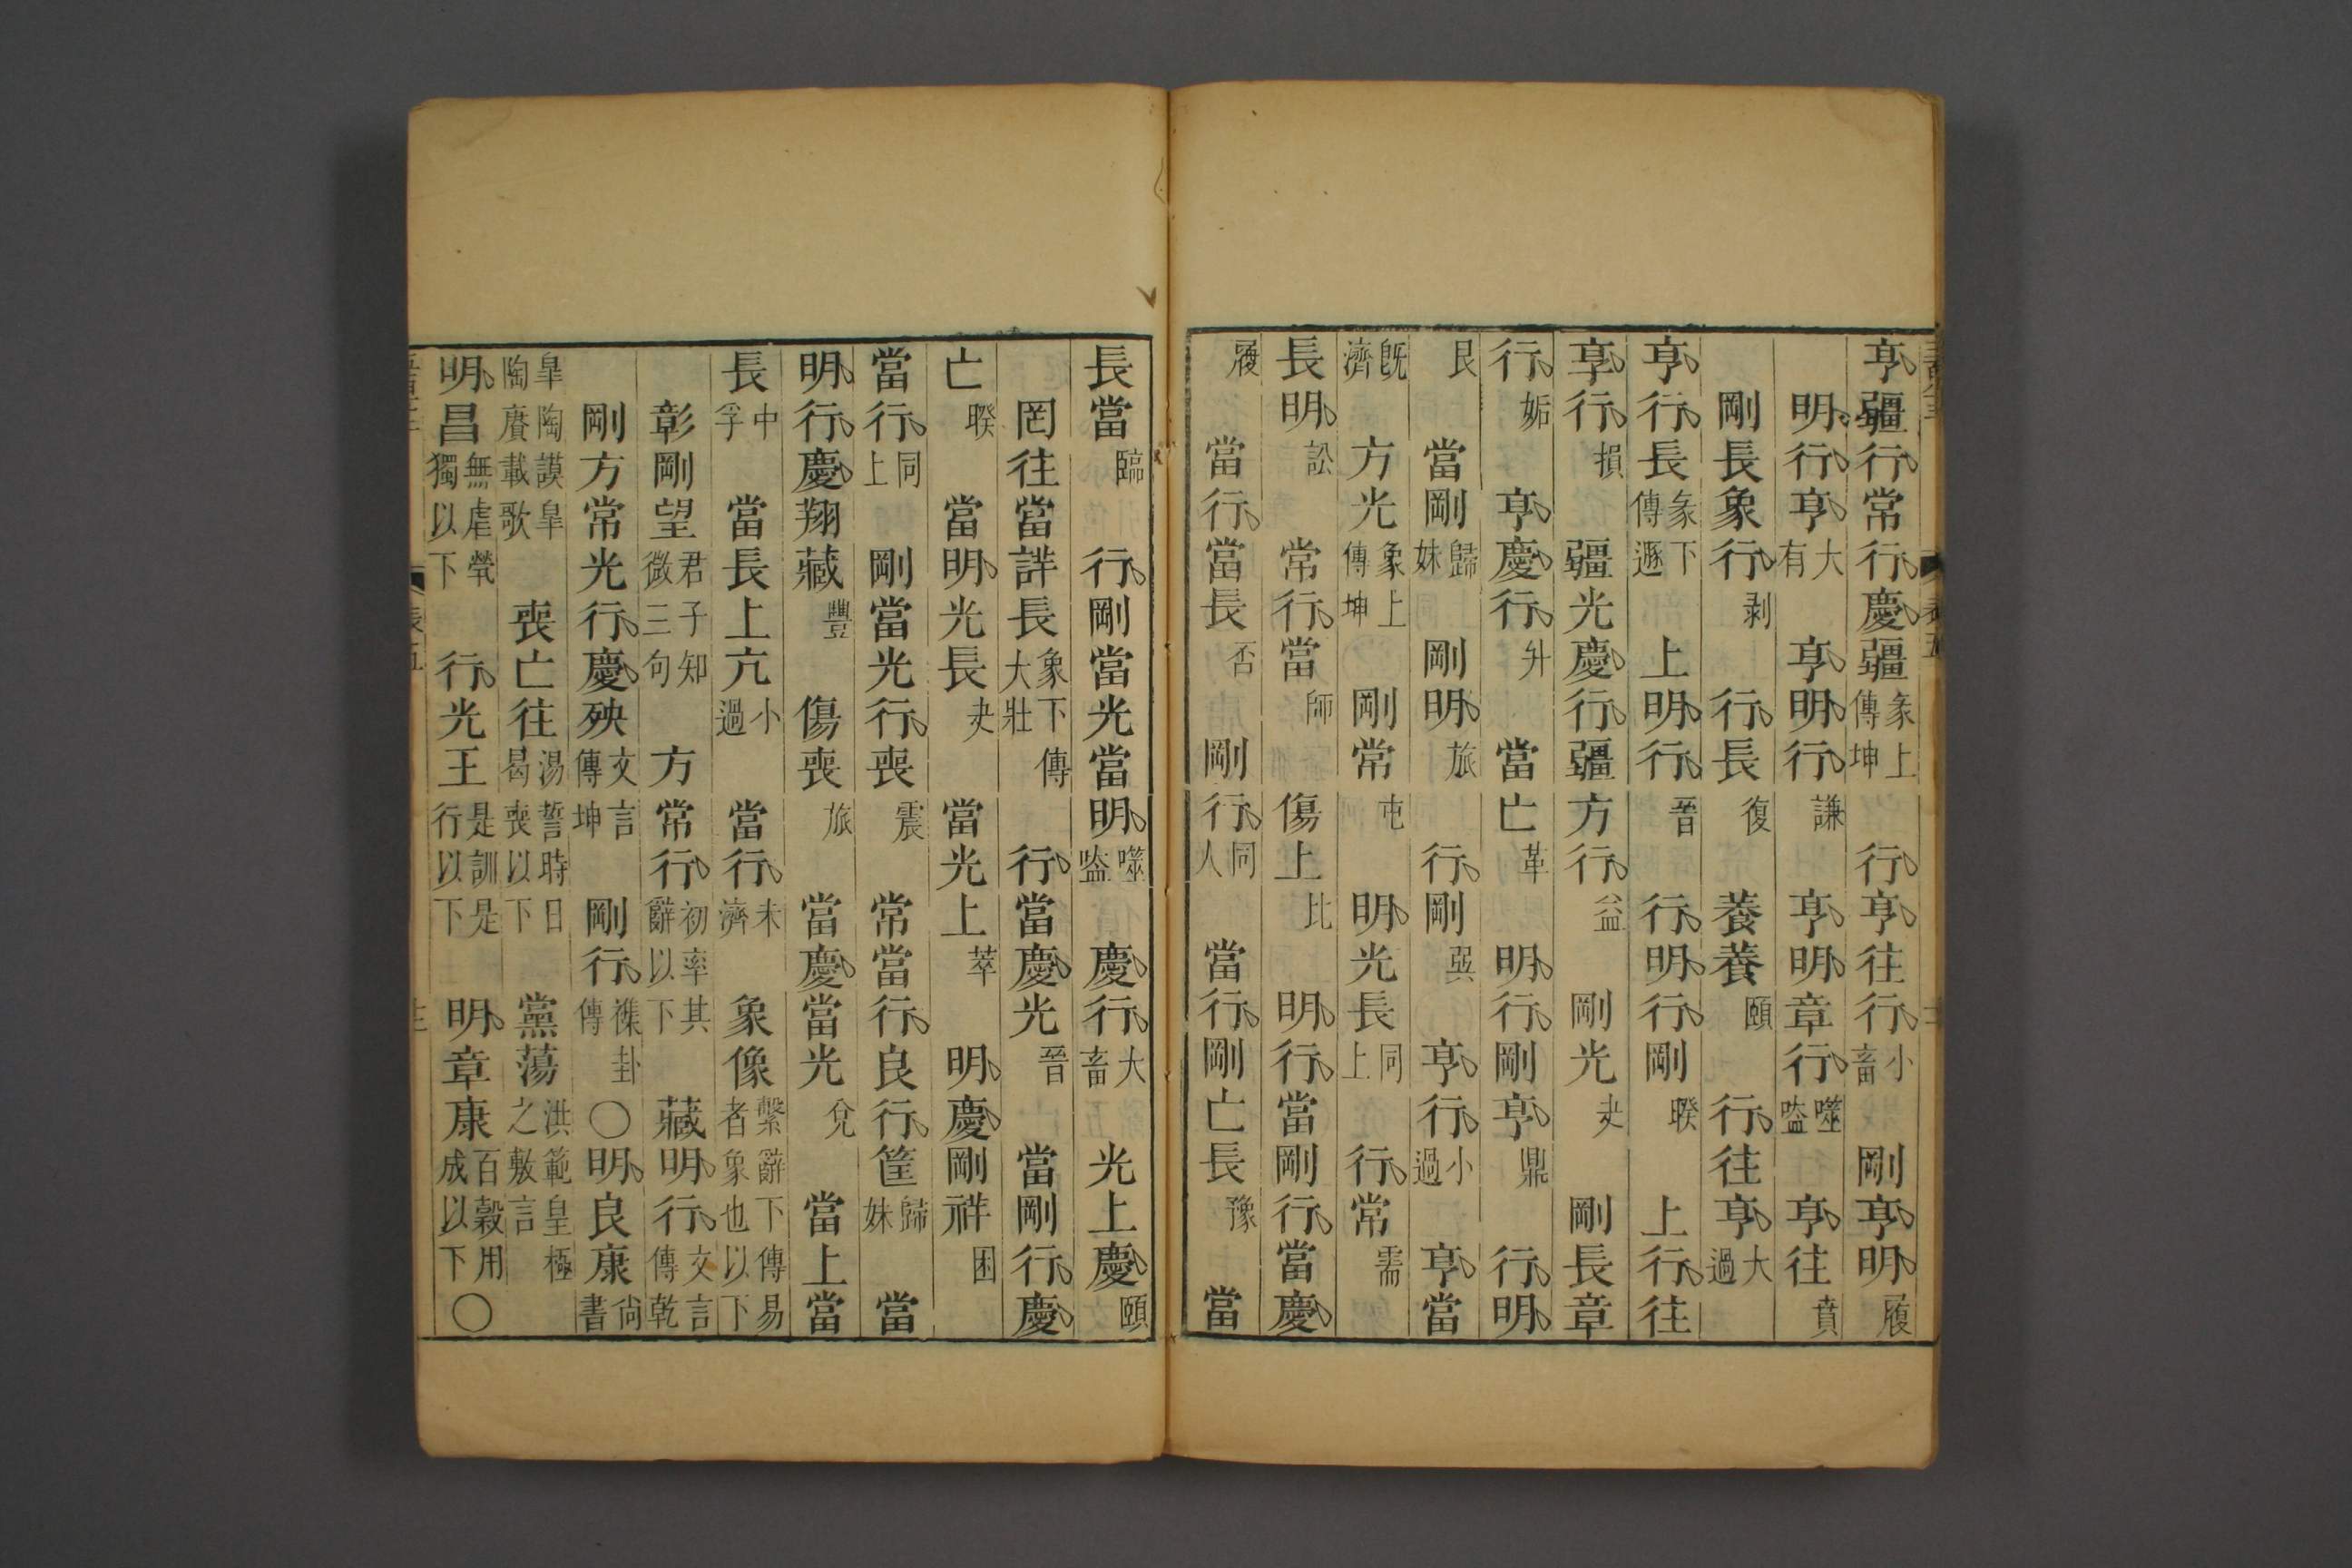 亨疆行常行慶疆彖上傳坤行亨往行小畜剛亨明履
明行亨大有亨明行謙亨明章行噬嗑亨往賁
剛長象行剥行長復養養頤行往亨大過
亨行長彖下傳遯上明行晉行明行剛睽上行往
亨行損疆光慶行疆方行益剛光夬剛長章
行姤亨慶行升當亡革明行剛亨鼎行明
艮當剛歸妹剛明旅行剛巽亨行小過亨當
旣濟方光象上傳坤剛常屯明光長同上行常需
長明訟常行當師傷上比明行當剛行當慶
履當行當長否剛行同人當行剛亡長豫當
長當臨行剛當光當明噬嗑慶行大畜光上慶頤
罔往當詳長象下傳大壯行當慶光晉當剛行慶
亡睽當明光長夬當光上萃明慶剛祥困
當行同上剛當光行喪震常當行良行筐歸妹當
明行慶翔藏豐傷喪旅當慶當光兌當上當
長中孚當長上亢小過當行未濟象像繫辭下傳易者象也以下
彰剛望君子知微三句方常行初率其辭以下藏明行文言傳乾
剛方常光行慶殃文言傳坤剛行襍卦傳〇明良康尙書
皐陶謨皐陶賡載歌喪亡往湯誓時日曷喪以下黨蕩洪範皇極之敷言
明昌無虐煢獨以下行光王是訓是行以下明章康百穀用成以下〇